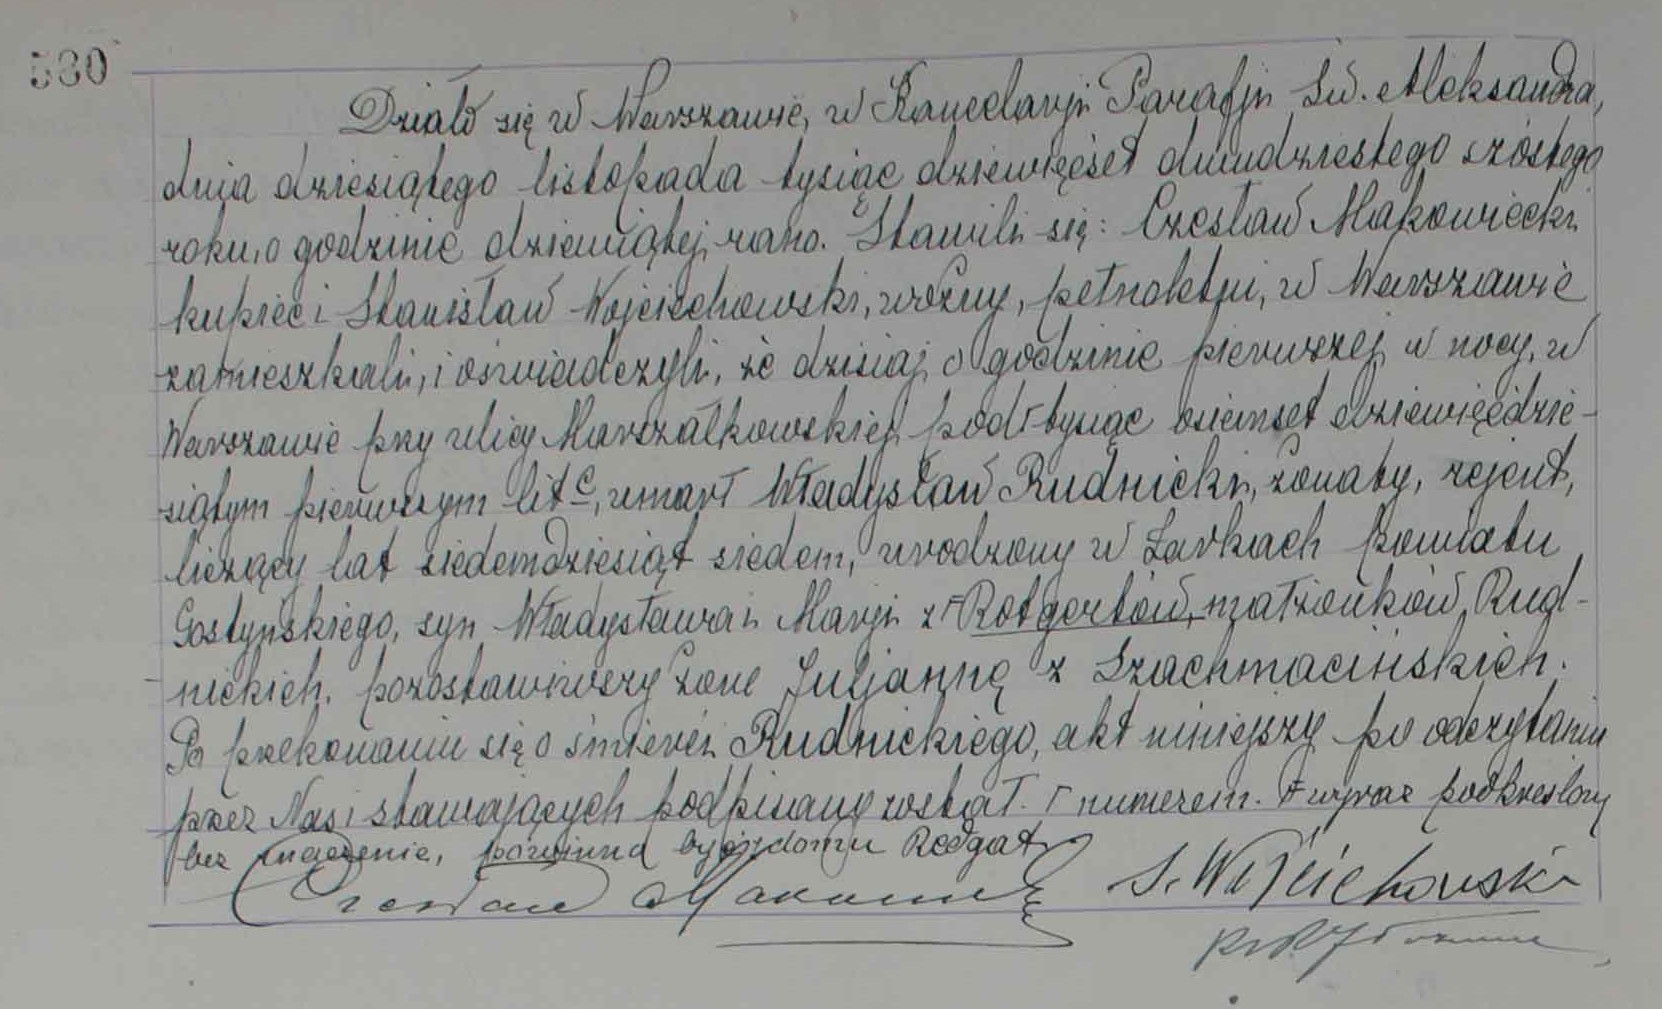 530
Działo się w Warszawie, w Kancelaryi Parafji Św. Aleksandra,
dnia dziesiątego listopada tysiąc dziewięćset dwudziestego szóstego
roku, o godzinie dziewiątej rano. Stawili się: Czesław Makowiecki
kupiec i Stanisław Wojciechowski, woźny, pełnoletni, w Warszawie
zamieszkali, i oświadczyli, że dzisiaj o godzinie pierwszej w nocy, w
Warszawie przy ulicy Marszałkowskiej pod tysiąc osiemset dziewięćdzie-
siątym pierwszym lit c, umarł Władysław Rudnicki, żonaty, rejent,
liczący lat siedemdziesiąt siedem, urodzony w Ławkach powiatu
Gostyńskiego, syn Władysława i Maryi z Rotgertów, małżonków Rud-
nickich. pozostawiwszy żonę Juljannę z Szachmacińskich.
Po przekonaniu się o śmierci Rudnickiego, akt niniejszy po odczytaniu
przez Nas i stawających podpisany został. Γ numerem. F wyraz podkreślony
bez znaczenia, powinno być z domu
Czesław S. Wojciechowski